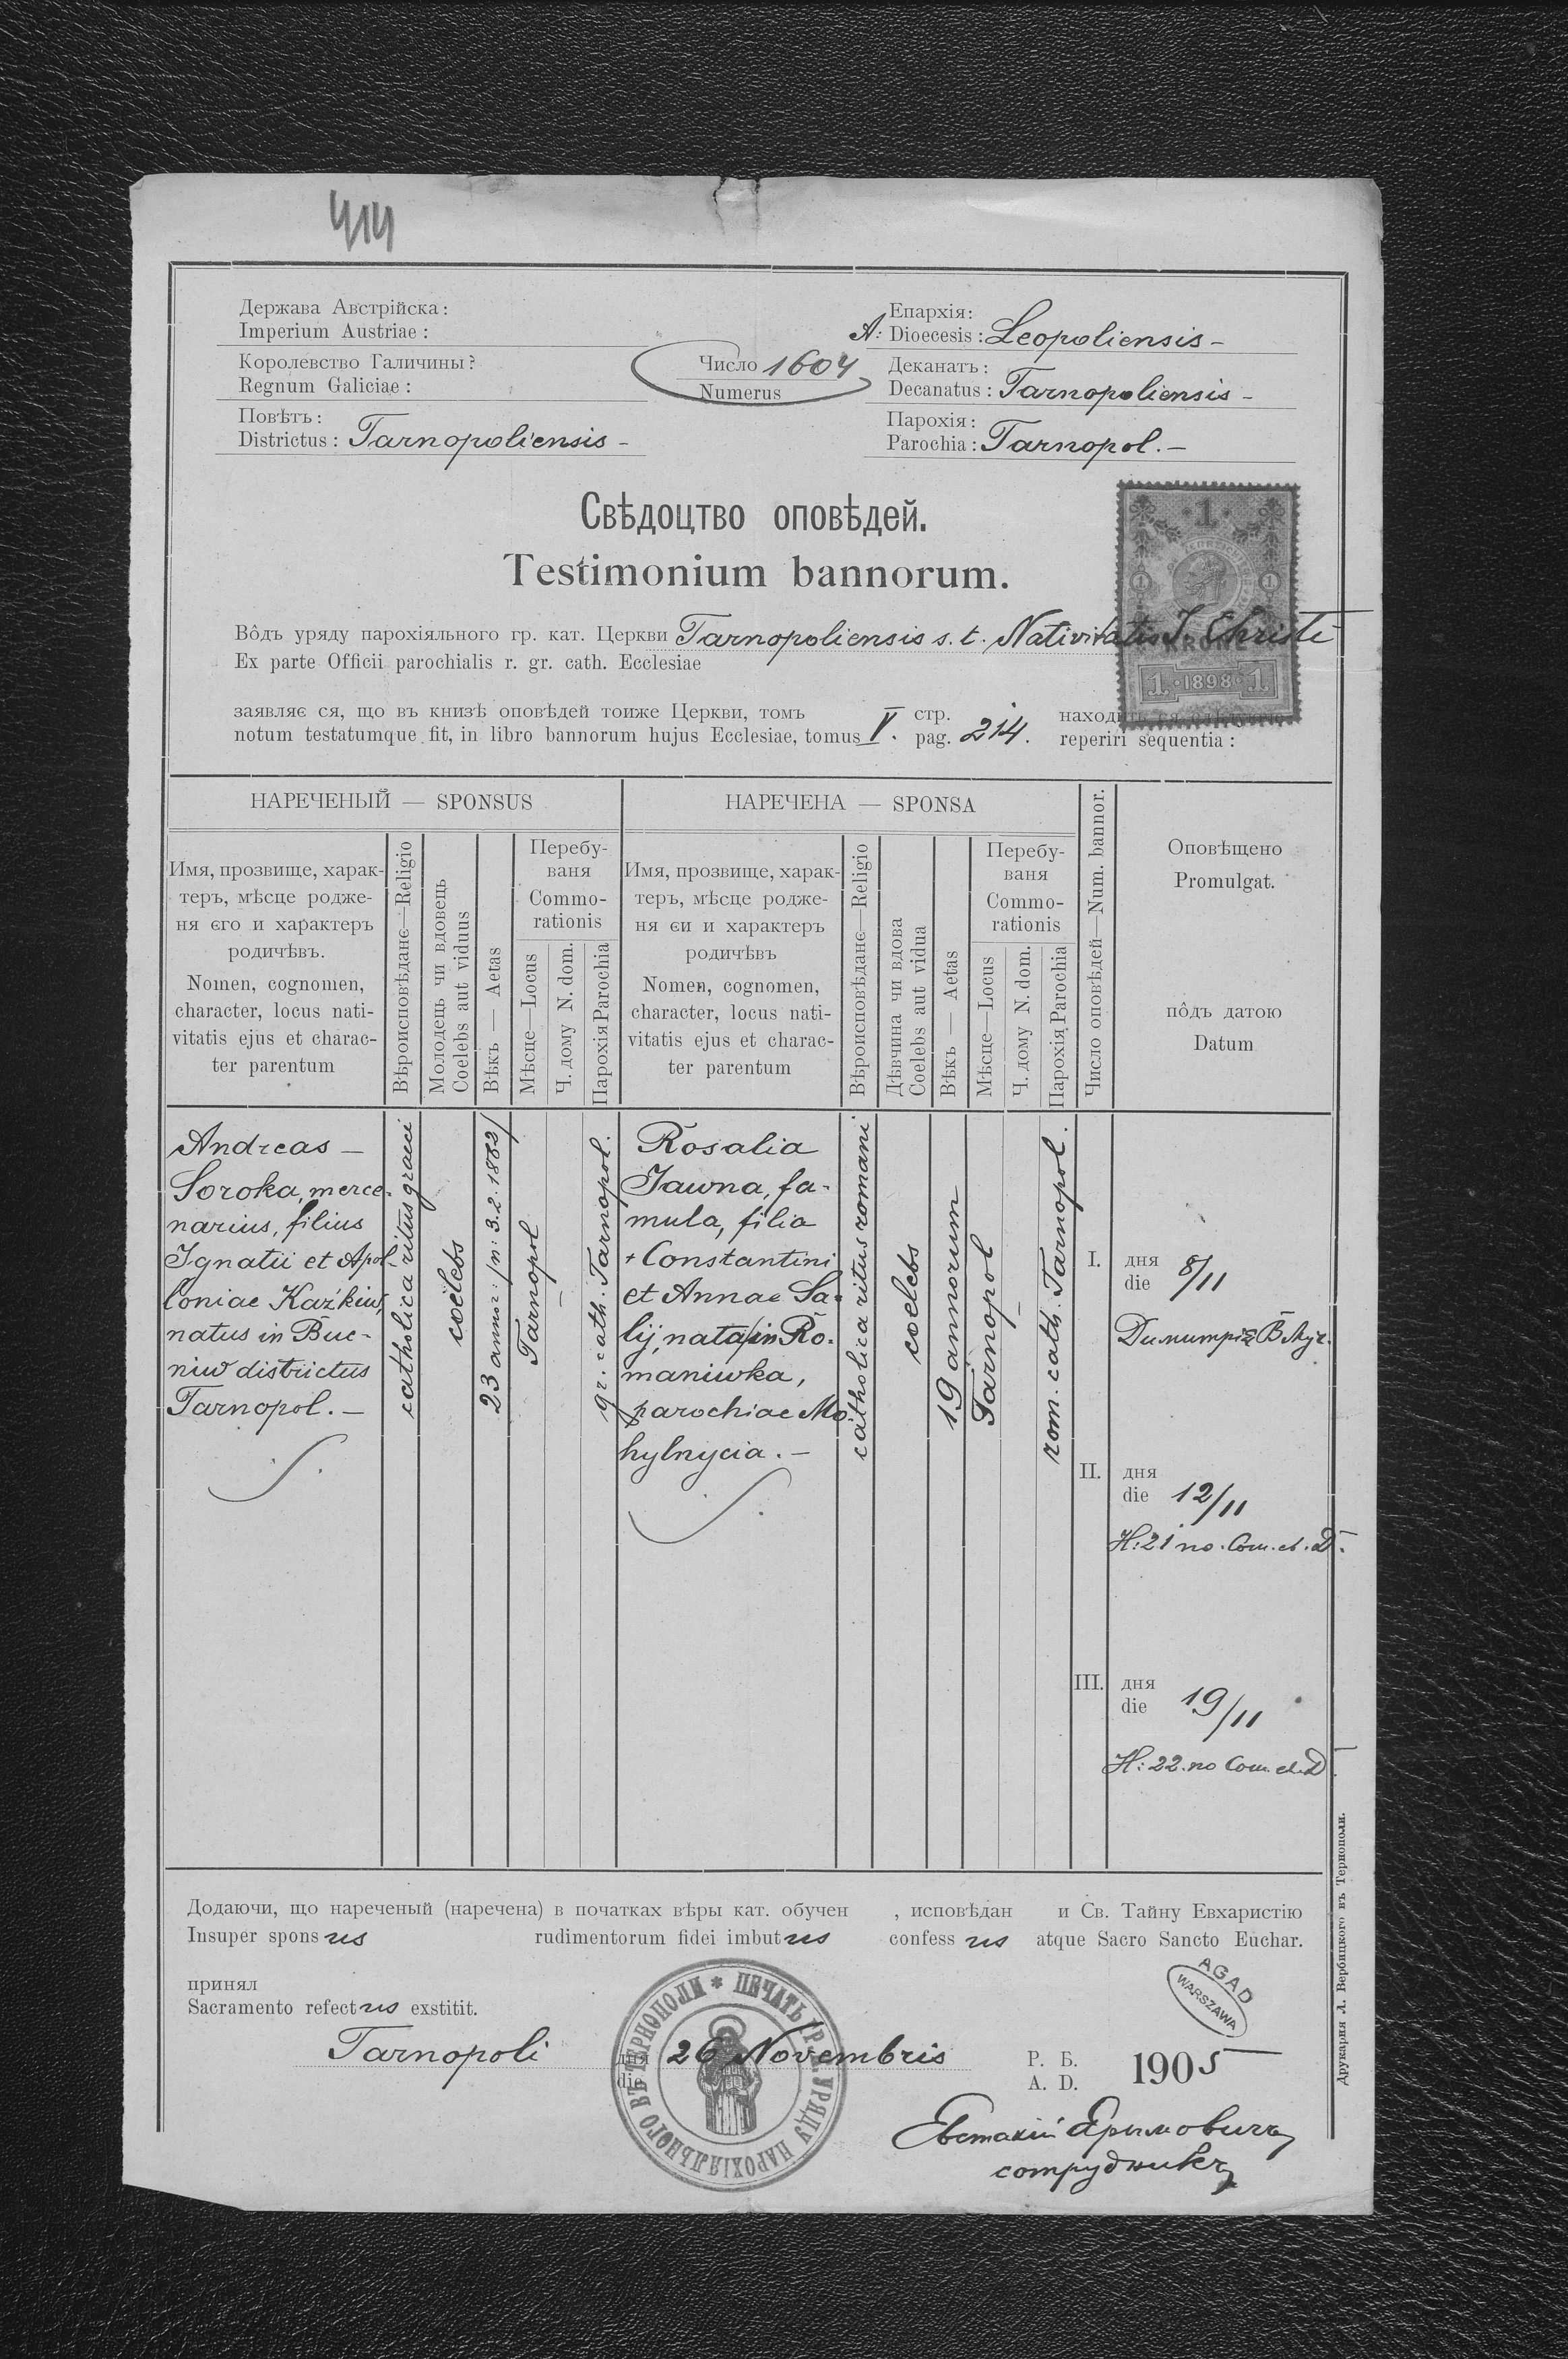 414
Держава Австрійска:
Imperium Austriae:
Королевство Галичины?
Regnum Galiciae:
Повѣтъ:
Districtus: Tarnopoliensis -
Число 1604
Numerus
Епархія:
A: Dioecesis: Leopoliensis -
Деканатъ:
Decanatus: Tarnopoliensis -
Парохія:
Parochia: Tarnopol. -
Свѣдоцтво оповѣдей.
Testimonium bannorum.
1
1 1
KRONE
1 · 1898 · 1
Вôдъ уряду парохіяльного гр. кат. Церкви Tarnopoliensis s. t. Nativitatis J. Christi
Ex parte Officii parochialis r. gr. cath. Ecclesiae
заявляє ся, що въ книзѣ оповѣдей тоиже Церкви, томъ стр.
notum testatumque fit, in libro bannorum hujus Ecclesiae, tomus V. pag. 214. reperiri sequentia:
НАРЕЧЕНЫЙ — SPONSUS
НАРЕЧЕНА — SPONSA
Имя, прозвище, харак-
теръ, мѣсце родже-
ня єго и характеръ
родичѣвъ.
Nomen, cognomen,
character, locus nati-
vitatis ejus et charac-
ter parentum
Вѣроисповѣданє—Religio
Молодець чи вдовець
Coelebs aut viduus
Вѣкъ — Aetas
Перебу-
ваня
Commo-
rationis
Мѣсце—Locus
Ч. дому N. dom.
Парохія Parochia
Имя, прозвище, харак-
теръ, мѣсце родже-
ня єи и характеръ
родичѣвъ
Nomen, cognomen,
character, locus nati-
vitatis ejus et charac-
ter parentum
Вѣроисповѣданє—Religio
Дѣвчина чи вдова
Coelebs aut vidua
Вѣкъ — Aetas
Перебу-
ваня
Commo-
rationis
Мѣсце—Locus
Ч. дому N. dom.
Парохія Parochia
Число оповѣдей—Num. bannor.
Оповѣщено
Promulgat.
пôдъ датою
Datum
Andreas —
Soroka, merce-
narius, filius
Ignatii et Apol-
loniae Kaźkiw,
natus in Buc-
niw districtus
Tarnopol. —
catholica ritus graeci
coelebs
23 annor: /n: 3.2.1882/
Tarnopol
—
gr. cath. Tarnopol.
Rosalia
Jawna, fa-
mula, filia
+ Constantini
et Annae Sa-
lij, nata in Ro-
maniwka,
parochiae Mo-
hylnycia. —
catholica ritus romani
coelebs
19 annorum
Tarnopol
—
rom. cath. Tarnopol.
I. дня
die 8/11
II. дня
die 12/11
III. дня
die 19/11
Додаючи, що нареченый (наречена) в початках вѣры кат. обучен , исповѣдан и Св. Тайну Евхаристію
Insuper sponsus rudimentorum fidei imbutus confessus atque Sacro Sancto Euchar.
принял
Sacramento refectus exstitit.
Tarnopoli дня 26 Novembris Р. Б.
die A. D. 1905
ПЕЧАТЬ ГР. К. УРЯДУ ПАРОХІЯЛЬНОГО ВЪ ТЕРНОПОЛИ
AGAD
WARSZAWA
сотрудникъ
Друкарня Л. Вербицкого въ Тернополи.